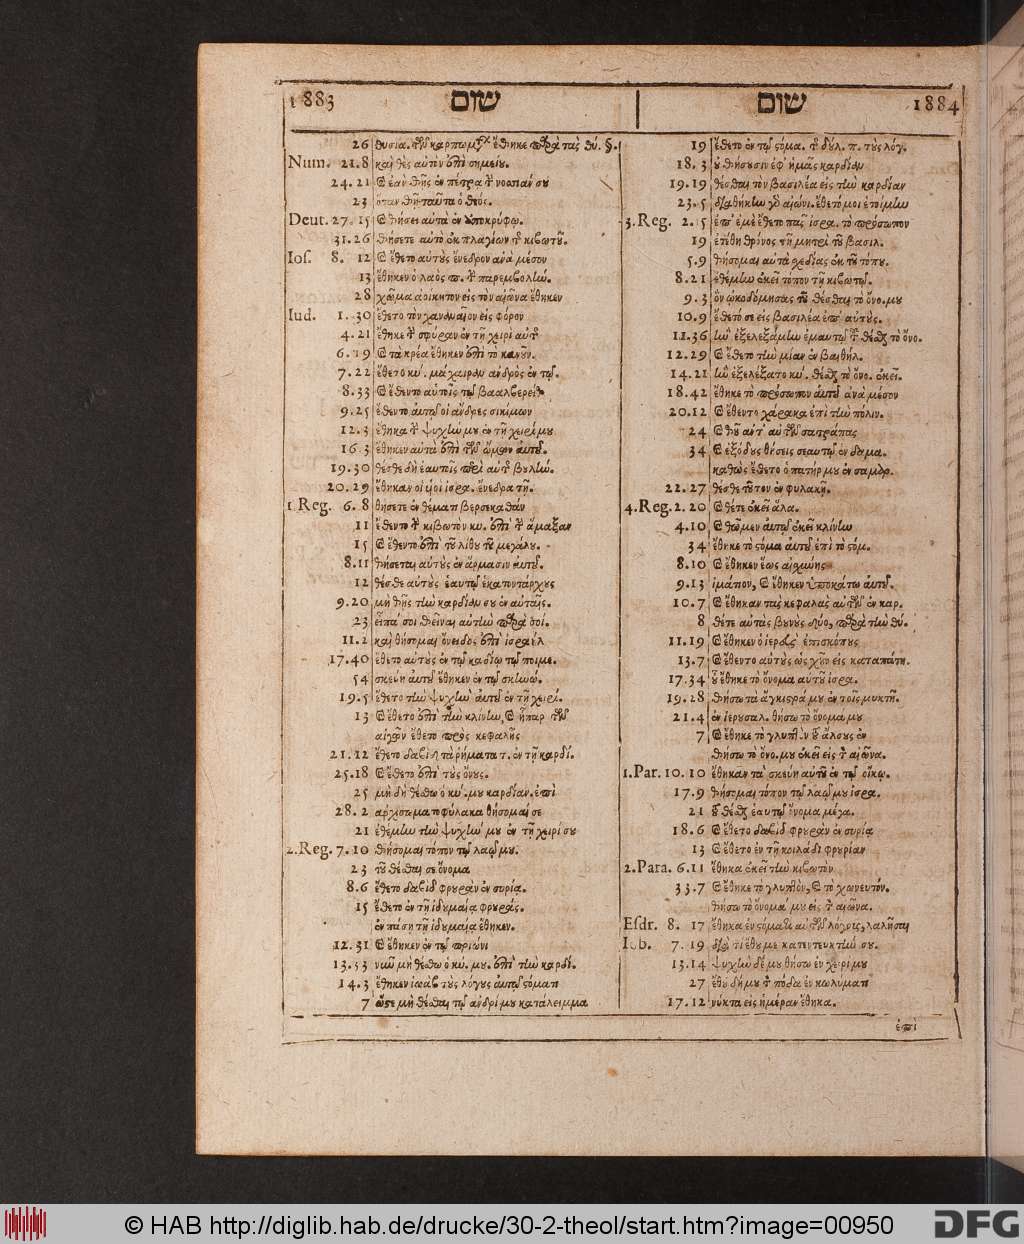 1883 שום
26 θυσια. τῶν καρπωμ. ἔθηκε παρὰ τὰς θύ. ϛ.
Num. 21.8 καὶ θὲς αὐτὸν ἐπὶ σημείου.
24.21 καὶ ἐὰν θῇς ἐν πέτρᾳ τὴν νοσσιάν σου
23 ὅταν θῇ ταῦτα ὁ θεός.
Deut. 27.15 καὶ θήσει αὐτὰ ἐν ὑποκρύφῳ.
31.26 θήσετε αὐτὸ ἐκ πλαγίων τῆς κιβωτοῦ.
Ios. 8. 12 καὶ ἔθετο αὐτοὺς ἔνεδρον ἀνὰ μέσον
13 ἔθηκεν ὁ λαὸς π. τὴν παρεμβολὴν.
28 χῶμα ἀοίκητον εἰς τὸν αἰῶνα ἔθηκεν
Iud. 1. 30 ἔθετο τὸν χανααναῖον εἰς φόρον
4.21 ἔθηκε τὴν σφύραν ἐν τῇ χειρὶ αὐτῆς
6.19 καὶ τὰ κρέα ἔθηκεν ἐπὶ τὸ κανοῦν.
7.22 ἔθετο κύ. μάχαιραν ἀνδρὸς ἐν τῷ.
8.33 καὶ ἔθεντο αὑτοῖς τῷ βααλβερεὶθ
9.25 ἔθεντο αὐτῷ οἱ ἄνδρες σικίμων
12.3 ἔθηκα τὴν ψυχήν μου ἐν τῇ χειρί μου
16 3 ἔθηκεν αὐτὰ ἐπὶ τῶν ὤμων αὐτοῦ.
19.30 θέσθε δὴ ἑαυτοῖς περὶ αὐτῆς βουλὴν.
20.29 ἔθηκαν οἱ υἱοὶ ἰσρα. ἔνεδρα τῇ.
1.Reg. 6.8 θήσετε ἐν θέματι βερσεχθάν
11 ἔθεντο τὴν κιβωτὸν κυ. ἐπὶ τὴν ἅμαξαν
15 καὶ ἔθεντο ἐπὶ τοῦ λίθου τοῦ μεγάλου.
8.11 θήσεται αὐτοὺς ἐν ἅρμασιν αὐτοῦ.
12 θέσθε αὐτοὺς ἑαυτῷ ἑκατοντάρχους
9.20 μὴ θῇς τὴν καρδίαν σου ἐν αὐταῖς.
23 εἶπά σοι θεῖναι αὐτὴν παρὰ σοί.
11.2 καὶ θήσομαι ὄνειδος ἐπὶ ἰσραήλ
17.40 ἔθετο αὐτοὺς ἐν τῷ καδίῳ τῷ ποιμε.
54 σκεύη αὐτοῦ ἔθηκεν ἐν τῷ σκίωώ.
19.5 ἔθετο τὴν ψυχὴν αὐτοῦ ἐν τῇ χειρί.
13 καὶ ἔθετο ἐπὶ τὴν κλίνην, καὶ ἧπαρ τῶν
αἰγῶν ἔθετο πρὸς κεφαλῆς
21.12 ἔθετο δαβὶδ τὰ ῥήματα τ. ἐν τῇ καρδί.
25.18 καὶ ἔθετο ἐπὶ τοὺς ὄνους.
25 μὴ δὴ θέσθω ὁ κύ. μου καρδίαν. ἐπὶ
28.2 ἀρχισωματοφύλακα θήσομαί σε
21 ἐθέμην τὴν ψυχήν μου ἐν τῇ χειρί σου
2.Reg. 7.10 θήσομαι τόπον τῷ λαῷ μου.
23 τοῦ θέσθαι σε ὄνομα
8.6 ἔθετο δαβὶδ φρουρὰν ἐν συρίᾳ.
15 ἔθετο ἐν τῇ ἰδυμαίᾳ φρουράς.
ἐν πάσῃ τῇ ἰδυμαίᾳ ἔθηκεν.
12.31 καὶ ἔθηκεν ἐν τῷ πρίωνι
13.53 νῦν μὴ θέσθω ὁ κύ. μου. ἐπὶ τὴν καρδί.
14.3 ἔθηκεν ἰωὰβ τοὺς λόγους αὐτῷ στόματι
7 ὥστε μὴ θέσθαι τῷ ἀνδρί μου κατάλειμμα
שום 1884
19 ἔθετο ἐν τῷ στόμα. τῆς δούλ. π. τοὺς λόγ.
18.3 οὐ θήσουσιν ἐφ' ἡμᾶς καρδίαν
19.19 θέσθαι τὸν βασιλέα εἰς τὴν καρδίαν
23.5 διαθήκην γὸ αἰώνι. ἔθετό μοι ἑτοίμην
3.Reg. 2.5 ἐπ' ἐμὲ ἔθετο πᾶς ἰσρα. τὸ πρόσωπον
19 ἐτέθη θρόνος τῇ μητρὶ τοῦ βασιλ.
5.9 θήσομαι αὐτὰ σχεδίας ἐκ τοῦ τόπου.
8.21 ἐθέμην ἐκεῖ τόπον τῇ κιβωτῷ.
9.3 ὃν ᾠκοδόμησας τοῦ θέσθαι τὸ ὄνο. μου
10.9 ἔθετό σε εἰς βασιλέα ἐπ' αὐτούς.
11.36 ἣν ἐξελεξάμην ἐμαυτῷ τοῦ θέσθαι τὸ ὄνο.
12.29 καὶ ἔθετο τὴν μίαν ἐν βαιθήλ.
14.21 ἣν ἐξελέξατο κύ. θέσθαι τὸ ὄνο. ἐκεῖ.
18.42 ἔθηκε τὸ πρόσωπον αὐτοῦ ἀνὰ μέσον
20.12 καὶ ἔθεντο χάρακα ἐπὶ τὴν πόλιν.
24 καὶ θοῦ ἀντ' αὐτῶν σατράπας
34 καὶ ἐξόδους θήσεις σεαυτῷ ἐν δαμα.
καθὼς ἔθετο ὁ πατήρ μου ἐν σαμαρ.
22.27 θέσθε τοῦτον ἐν φυλακῇ.
4.Reg. 2.20 καὶ θέτε ἐκεῖ ἅλα.
4.10 καὶ θῶμεν αὐτῷ ἐκεῖ κλίνην
34 ἔθηκε τὸ στόμα αὐτοῦ ἐπὶ τὸ στόμ.
8.10 καὶ ἔθηκεν ἕως αἰσχύνης
9.13 ἱμάτιον, καὶ ἔθηκεν ὑποκάτω αὐτοῦ.
10.7 καὶ ἔθηκαν τὰς κεφαλὰς αὐτῶν ἐν καρ.
8 θέτε αὐτὰς βουνοὺς δύο, παρὰ τὴν θύ.
11.19 καὶ ἔθηκεν ὁ ἱερεὺς ἐπισκόπους
13.7 καὶ ἔθεντο αὐτοὺς ὡς χοῦν εἰς καταπάτη.
17.34 οὗ ἔθηκε τὸ ὄνομα αὐτοῦ ἰσρα.
19.28 θήσω τὰ ἄγκιστρά μου ἐν τοῖς μυκτῆ.
21.4 ἐν ἱερουσαλ. θήσω τὸ ὄνομα μου
7 καὶ ἔθηκε τὸ γλυπτὸν τοῦ ἄλσους ἐν
θήσω τὸ ὄνο. μου ἐκεῖ εἰς τὸν αἰῶνα.
1.Par. 10.10 ἔθηκαν τὰ σκεύη αὐτοῦ ἐν τῷ οἴκῳ.
17.9 θήσομαι τόπον τῷ λαῷ μου ἰσρα.
21 τοῦ θέσθαι ἑαυτῷ ὄνομα μέγα.
18.6 καὶ ἔθετο δαβὶδ φρουρὰν ἐν συρίᾳ
13 καὶ ἔθετο ἐν τῇ κοιλάδι φρουρὰν
2.Para. 6.11 ἔθηκα ἐκεῖ τὴν κιβωτὸν
33.7 καὶ ἔθηκε τὸ γλυπτὸν, καὶ τὸ χωνευτόν.
θήσω τὸ ὄνομά μου εἰς τὸν αἰῶνα.
Esdr. 8. 17 ἔθηκα ἐν στόματι αὐτῶν λόγους, λαλῆσαι
Iob. 7. 19 διὰ τί ἔθου με κατεντευκτήν σου.
13.14 ψυχὴν δέ μου θήσω ἐν χειρί μου
27 ἔθου δή μου τὸν πόδα ἐν κωλύματι
17.12 νύκτα εἰς ἡμέραν ἔθηκα.
ἐπὶ
© HAB http://diglib.hab.de/drucke/30-2-theol/start.htm?image=00950
DFG